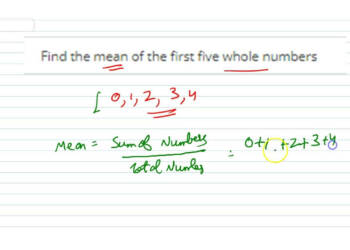 Find the mean of the first five whole numbers
[ 0, 1, 2, 3, 4
Mean = Sum of Numbers = 0+1+2+3+4
Total Number